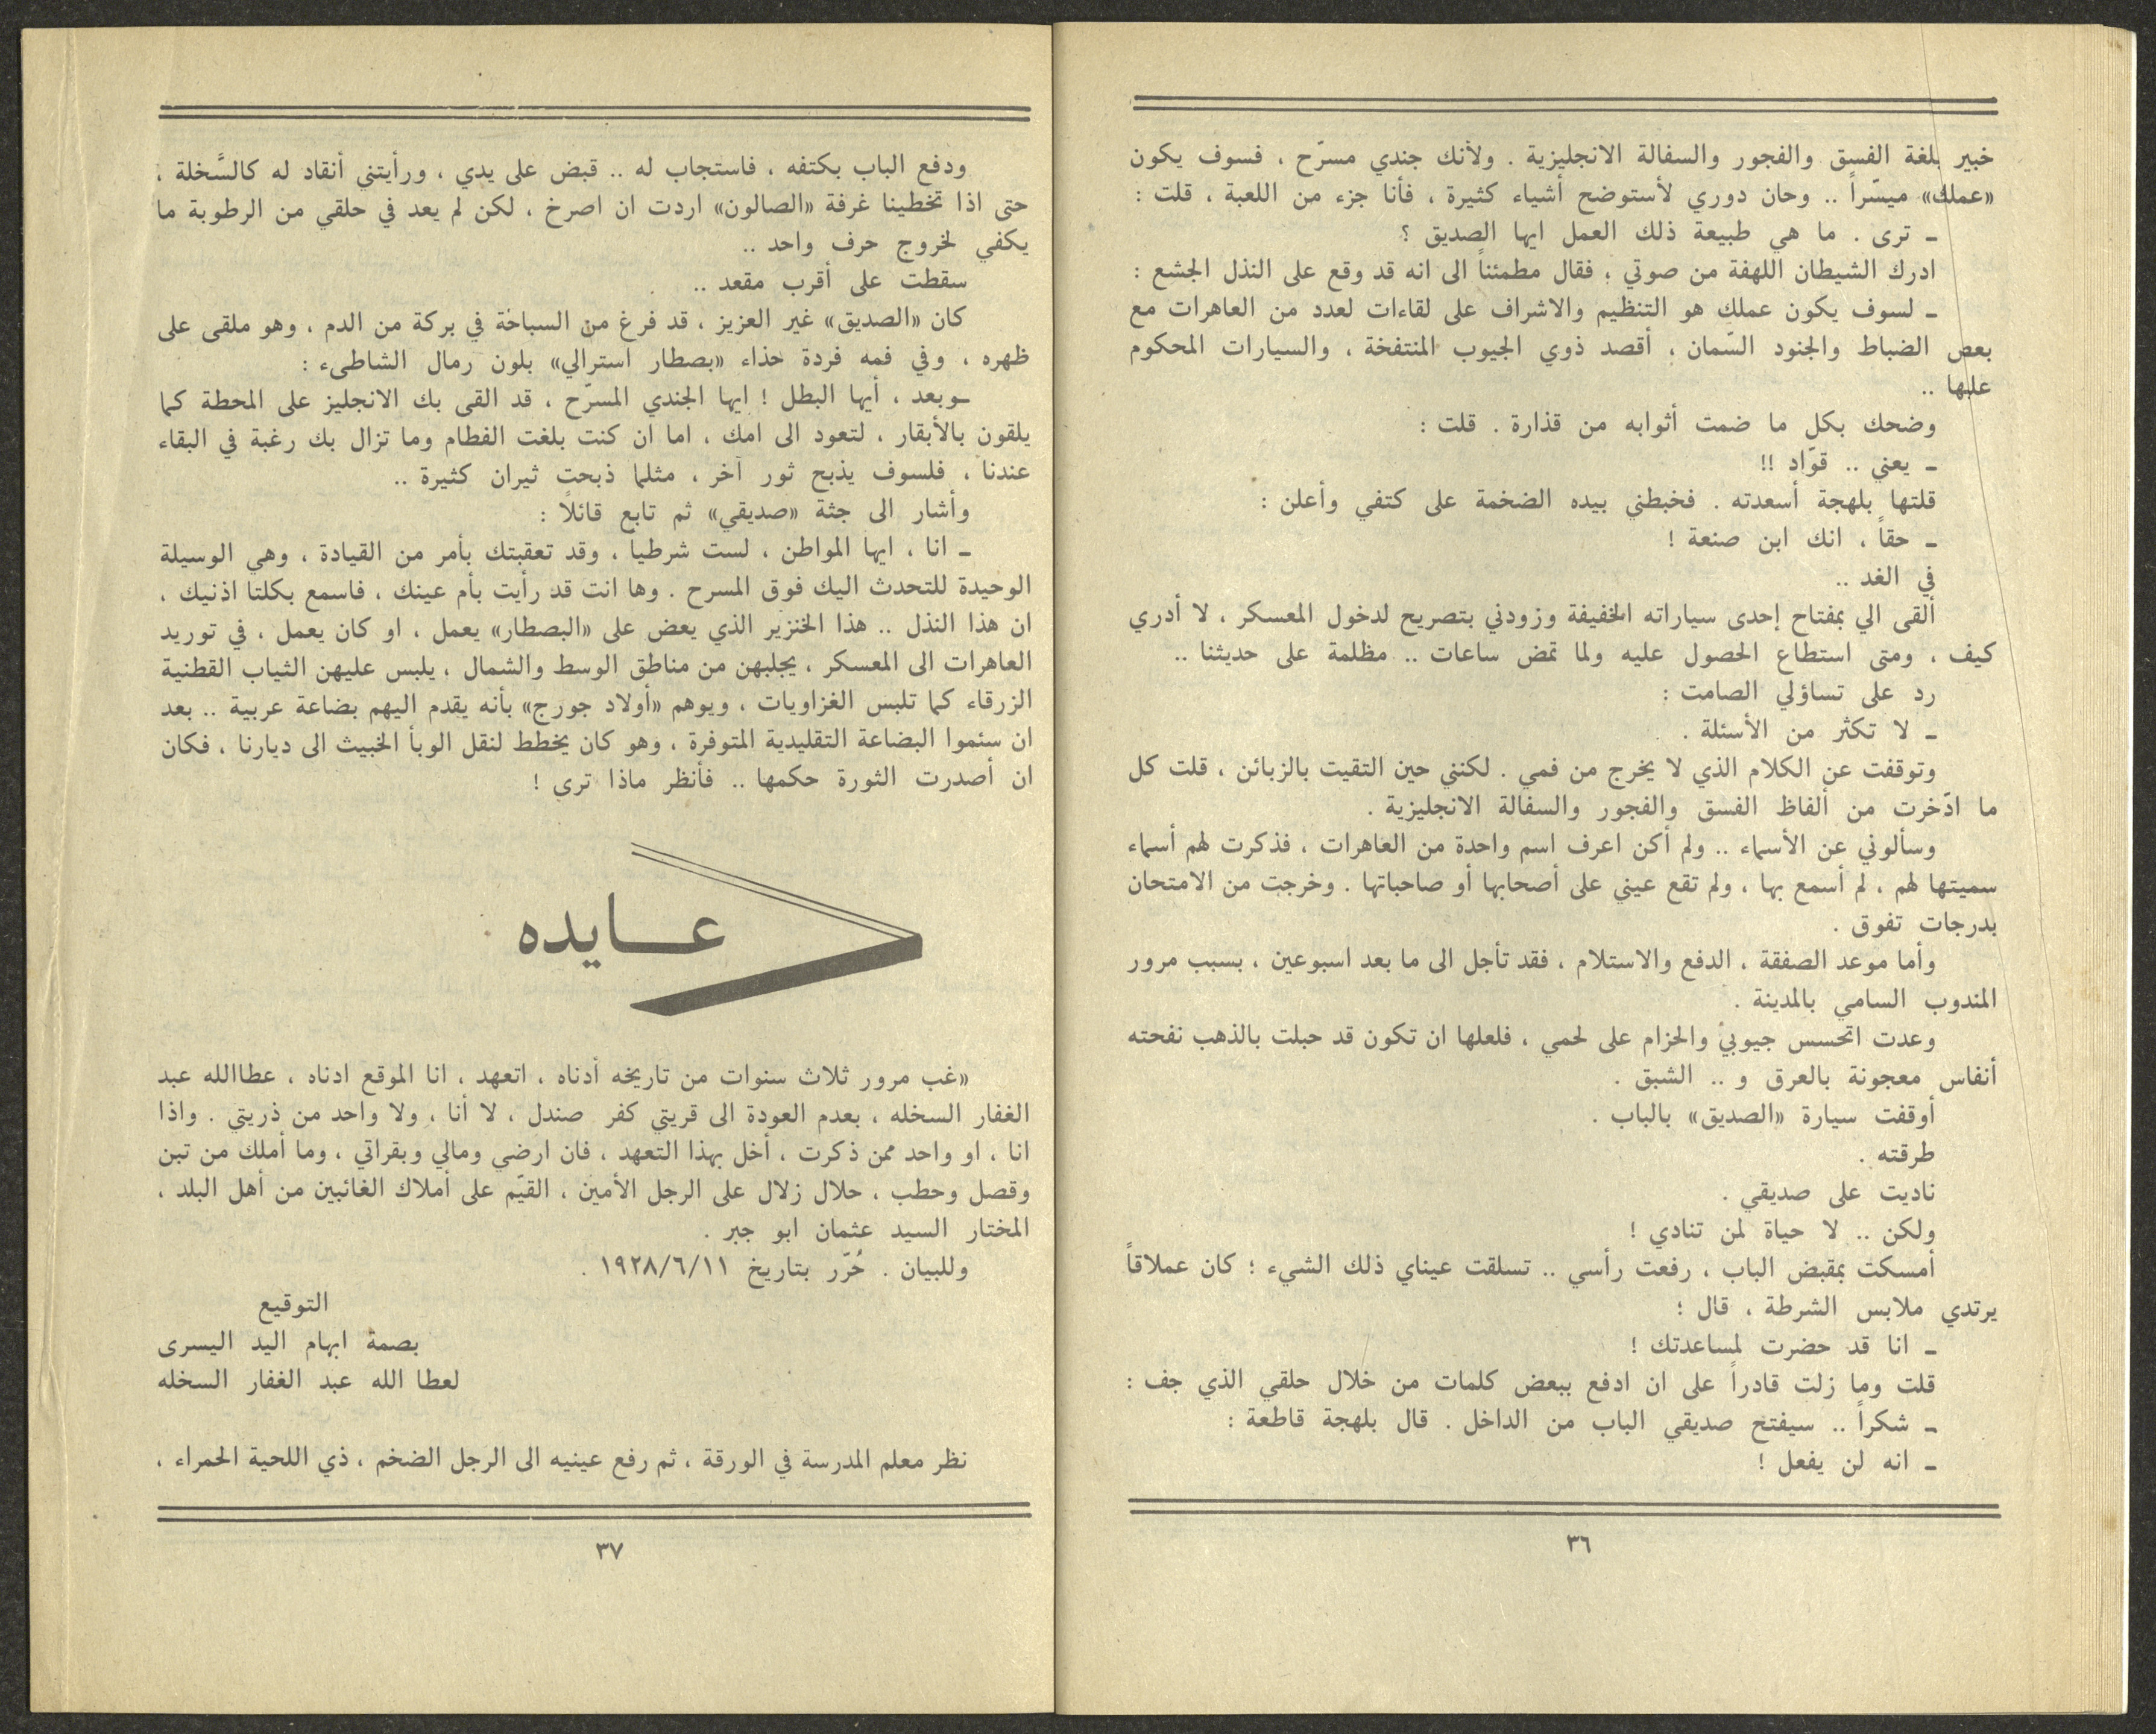 خبير بلغة الفسق والفجور والسفالة الانجليزية . ولأنك جندي مسرّح ، فسوف يكون
«عملك» ميسّراً .. وحان دوري لأستوضح أشياء كثيرة ، فأنا جزء من اللعبة ، قلت :
ـ ترى . ما هي طبيعة ذلك العمل ايها الصديق ؟
ادرك الشيطان اللهفة من صوتي ، فقال مطمئناً الى انه قد وقع على النذل الجشع :
ـ لسوف يكون عملك هو التنظيم والاشراف على لقاءات لعدد من العاهرات مع
بعض الضباط والجنود السّمان ، أقصد ذوي الجيوب المنتفخة ، والسيارات المحكوم
عليها ..
وضحك بكل ما ضمت أثوابه من قذارة . قلت :
ـ يعني .. قوّاد !!
قلتها بلهجة أسعدته . فخبطني بيده الضخمة على كتفي وأعلن :
ـ حقاً ، انك ابن صنعة !
في الغد ..
ألقى الي بمفتاح إحدى سياراته الخفيفة وزودني بتصريح لدخول المعسكر ، لا أدري
كيف ، ومتى استطاع الحصول عليه ولما تمض ساعات .. مظلمة على حديثنا ..
رد على تساؤلي الصامت :
ـ لا تكثر من الأسئلة .
وتوقفت عن الكلام الذي لا يخرج من فمي . لكنني حين التقيت بالزبائن ، قلت كل
ما ادّخرت من ألفاظ الفسق والفجور والسفالة الانجليزية .
وسألوني عن الأسماء .. ولم أكن اعرف اسم واحدة من العاهرات ، فذكرت لهم أسماء
سميتها لهم ، لم أسمع بها ، ولم تقع عيني على أصحابها أو صاحباتها . وخرجت من الامتحان
بدرجات تفوق .
وأما موعد الصفقة ، الدفع والاستلام ، فقد تأجل الى ما بعد اسبوعين ، بسبب مرور
المندوب السامي بالمدينة .
وعدت اتحسس جيوبي والحزام على لحمي ، فلعلها ان تكون قد حبلت بالذهب نفحته
أنفاس معجونة بالعرق و .. الشبق .
أوقفت سيارة «الصديق» بالباب .
طرقته .
ناديت على صديقي .
ولكن .. لا حياة لمن تنادي !
أمسكت بمقبض الباب ، رفعت رأسي .. تسلقت عيناي ذلك الشيء ؛ كان عملاقاً
يرتدي ملابس الشرطة ، قال :
ـ انا قد حضرت لمساعدتك !
قلت وما زلت قادراً على ان ادفع ببعض كلمات من خلال حلقي الذي جف :
ـ شكراً .. سيفتح صديقي الباب من الداخل . قال بلهجة قاطعة :
ـ انه لن يفعل !
٣٦
ودفع الباب بكتفه ، فاستجاب له .. قبض على يدي ، ورأيتني أنقاد له كالسَّخلة ،
حتى اذا تخطينا غرفة «الصالون» اردت ان اصرخ ، لكن لم يعد في حلقي من الرطوبة ما
يكفي لخروج حرف واحد ..
سقطت على أقرب مقعد ..
كان «الصديق» غير العزيز ، قد فرغ من السباحة في بركة من الدم ، وهو ملقى على
ظهره ، وفي فمه فردة حذاء «بصطار استرالي» بلون رمال الشاطىء :
ـوبعد ، أيها البطل ! ايها الجندي المسرّح ، قد القى بك الانجليز على المحطة كما
يلقون بالأبقار ، لتعود الى امك ، اما ان كنت بلغت الفطام وما تزال بك رغبة في البقاء
عندنا ، فلسوف يذبح ثور آخر ، مثلما ذبحت ثيران كثيرة ..
وأشار الى جثة «صديقي» ثم تابع قائلاً :
ـ انا ، ايها المواطن ، لست شرطيا ، وقد تعقبتك بأمر من القيادة ، وهي الوسيلة
الوحيدة للتحدث اليك فوق المسرح . وها انت قد رأيت بأم عينك ، فاسمع بكلتا اذنيك ،
ان هذا النذل .. هذا الخنزير الذي يعض على «البصطار» يعمل ، او كان يعمل ، في توريد
العاهرات الى المعسكر ، يجلبهن من مناطق الوسط والشمال ، يلبس عليهن الثياب القطنية
الزرقاء كما تلبس الغزاويات ، ويوهم «أولاد جورج» بأنه يقدم اليهم بضاعة عربية .. بعد
ان سئموا البضاعة التقليدية المتوفرة ، وهو كان يخطط لنقل الوبأ الخبيث الى ديارنا ، فكان
ان أصدرت الثورة حكمها .. فأنظر ماذا ترى !
عـــايده
«غب مرور ثلاث سنوات من تاريخه أدناه ، اتعهد ، انا الموقع ادناه ، عطاالله عبد
الغفار السخله ، بعدم العودة الى قريتي كفر صندل ، لا أنا ، ولا واحد من ذريتي . واذا
انا ، او واحد ممن ذكرت ، أخل بهذا التعهد ، فان ارضي ومالي وبقراتي ، وما أملك من تبن
وقصل وحطب ، حلال زلال على الرجل الأمين ، القيّم على أملاك الغائبين من أهل البلد ،
المختار السيد عثمان ابو جبر .
وللبيان . حُرّر بتاريخ ١٩٢٨/٦/١١ .
التوقيع
بصمة ابهام اليد اليسرى
لعطا الله عبد الغفار السخله
نظر معلم المدرسة في الورقة ، ثم رفع عينيه الى الرجل الضخم ، ذي اللحية الحمراء ،
٣٧